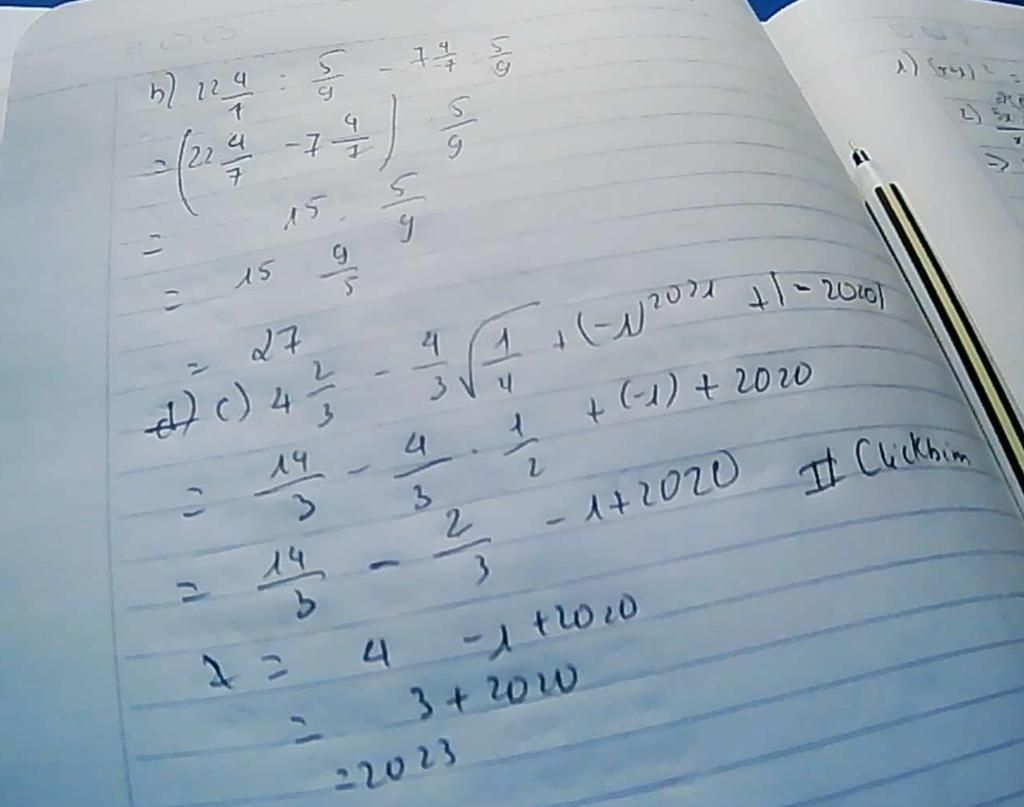 b) 22 4/7 : 5/9 - 7 4/7 : 5/9
= (22 4/7 - 7 4/7) : 5/9
= 15 . 5/9
= 15 9/5
= 27
c) 4 2/3 - 4/3 √(1/4) + (-1)^2021 + |-2020|
= 14/3 - 4/3 . 1/2 + (-1) + 2020
= 14/3 - 2/3 - 1 + 2020
= 4 - 1 + 2020
= 3 + 2020
= 2023
II Clickbim
1)
2)
=>